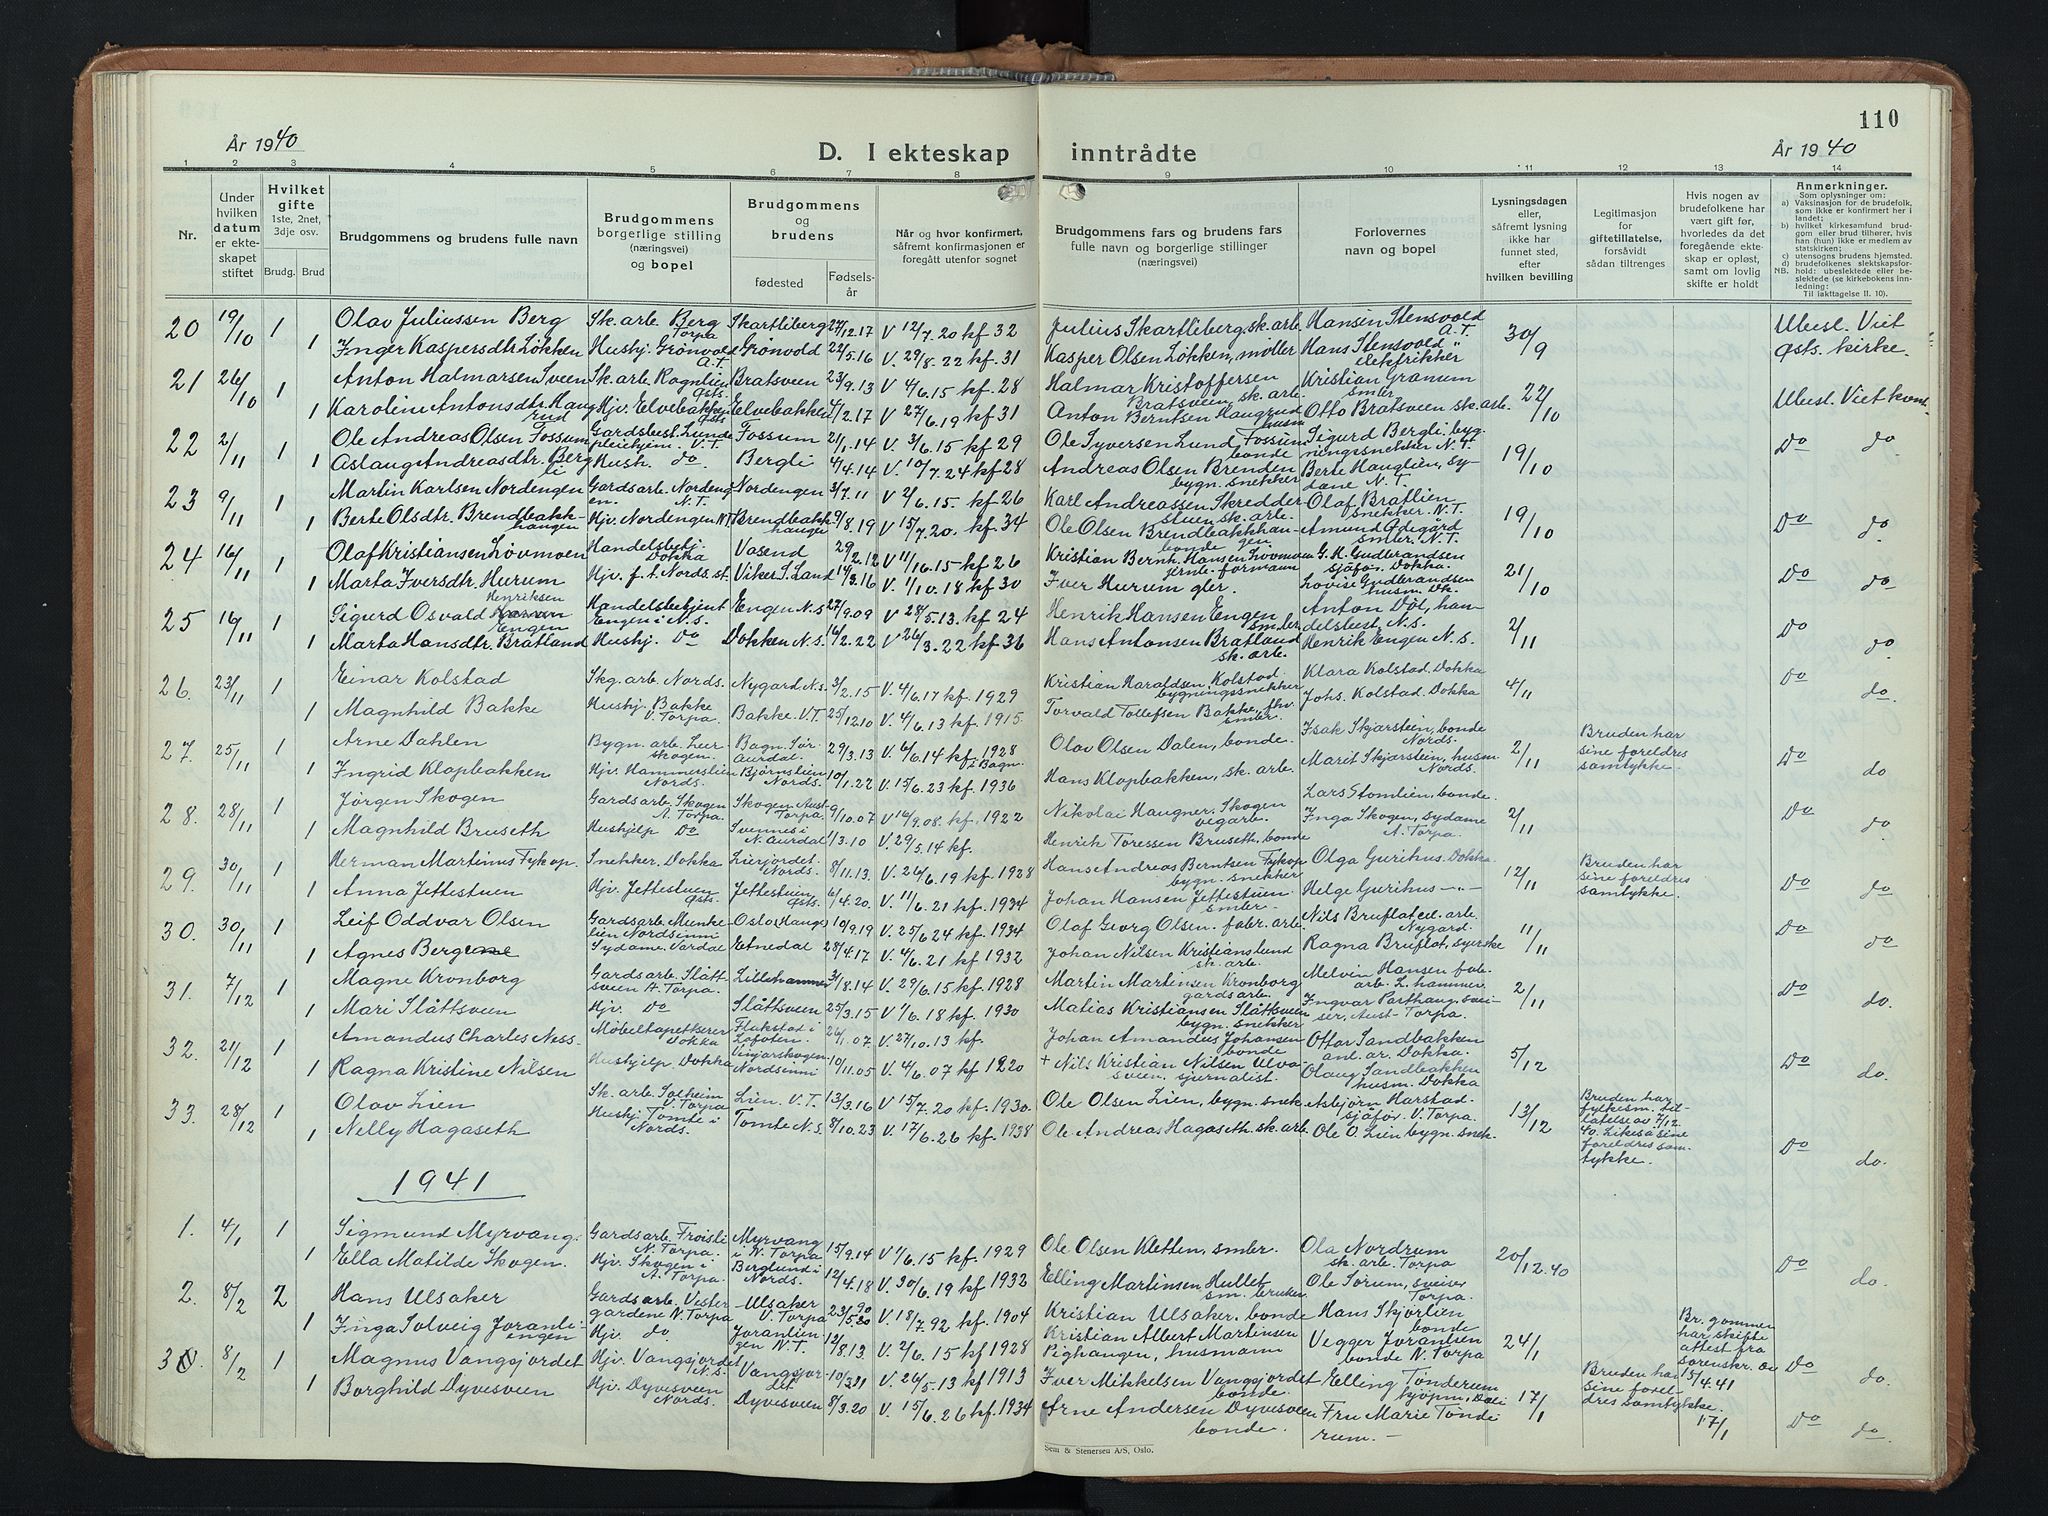 110
År 1940
D. I ekteskap inntrådte
År 1940
1 2 3 4 5 6 7 8 9 10 11 12 13 14
Nr.
Under hvilken datum er ekteskapet stiftet
Hvilket gifte 1ste, 2net, 3dje osv.
Brudg. Brud
Brudgommens og brudens fulle navn
Brudgommens borgerlige stilling (næringsvei) og bopel
Brudgommens og brudens
fødested
Fødselsår
Når og hvor konfirmert, såfremt konfirmasjonen er foregått utenfor sognet
Brudgommens fars og brudens fars fulle navn og borgerlige stillinger (næringsvei)
Forlovernes navn og bopel
Lysningsdagen eller, såfremt lysning ikke har funnet sted, efter hvilken bevilling
Legitimasjon for giftetillatelse, forsåvidt sådan tiltrenges
Hvis nogen av brudefolkene har vært gift før, hvorledes da det foregående ekteskap er opløst, samt om lovlig skifte er holdt
Anmerkninger.
Som oplysninger om:
a) Vaksinasjon for de brudefolk, som ikke er konfirmert her i landet;
b) hvilket kirkesamfund brudgom eller brud tilhører, hvis han (hun) ikke er medlem av statskirken;
c) utensogns brudens hjemsted.
d) brudefolkenes slektskapsforhold: ubeslektede eller beslektede (se kirkebokens innledning:
NB. Til iakttagelse II. 10).
20 19/10 1 Olav Juliussen Berg Sk. arb. Berg Torpa Skartliberg 27/12.17 V 12/7.20 kf 32 Julius Skartliberg sk. arb. Hansin Stensvold A.T. 30/9 Ubesl. Viet
1 Inger Kaspersdtr Løkken Hushj. Grønvold A.T. Grønvold 22/5.16 V. 29/8.22 kf. 31 Kasper Olsen Løkken, møller Hans Stensvold " elektrikker Østs. kirke.
21 26/10 1 Anton Halmarsen Sveen Sk. arb. Rognlien Østs. Bratsveen 23/9.13 V 4/6.15 kf 28 Halmar Kristoffersen Bratsveen, sk. arb. Kristian Granum smbr. 22/10 Ubesl. Viet kont.
1 Karoline Antonsdtr. Haugrud Hjv. Elvebakken Østs Elvebakken 4/2.17 V 27/6.19 kf 31 Anton Berntsen Haugrud husm Otto Bratsveen sk. arb.
22 2/11 1 Ole Andreas Olsen Fossum Gardsbest. Lunde pleiehjem. V.T. Fossum 21/1.14 V. 3/6.15 kf 29 Ole Syversen Lund Fossum bonde Sigurd Bergli bygningssnekker N.T. 19/10 Do do.
1 Aslaug Andreasdtr. Bergli Hush. do. Bergli 4/4.14 V 10/7.24 kf 28 Andreas Olsen Brenden bygn. snekker Berte Hauglien, sydame N.T.
23 9/11 1 Martin Karlsen Nordengen Gardsarb. Nordengen. N.T. Nordengen 3/7.11 V 2/6.15. kf 26 Karl Andreassen Skredderstuen sk. arb. Olaf Bratlien snekker N.T. 19/10 Do do.
1 Berte Olsdtr. Brendbakkhaugen Hjv. Nordengen N.T. Brendbakkhaugen 9/8.19 V 15/7.20. kf. 34 Ole Olsen Brendbakkhaugen bonde Amund Ødegård smbr. N.T.
24 16/11 1 Olaf Kristiansen Lövmoen Handelsbetj. Dokka Vasend 29/2.12 V 11/16.15 kf 26 Kristian Bernh. Hansen Lövmoen jernb. formann G. H. Gudbrandsen sjåfør. Dokka. 21/10 Do do.
1 Marta Iversdtr. Hurum Hjv. f. t. Nords. st. Viker S. Land 14/3.16 V. 1/10.18 kf 30 Iver Hurum gbr. Lovise Gudbrandsen husm. Dk.
25 16/11 1 Sigurd Osvald Henriksen Engen Handelsbetjent Engen i N.S. Engen N.S 27/9.09 V 28/5.13 kf 24 Henrik Hansen Engen smbr. Anton Döl, handelsbest. N.S. 2/11 Do do.
1 Marta Hansdtr. Bratland Hushj. Do Dokken N.S. 16/2.22 V 26/3.22 kf 36 Hans Antonsen Bratland sk. arb. Henrik Engen N.S.
26. 23/11 1 Einar Kolstad Skg. arb. Nords. Nygard N.S. 3/2.15 V. 4/6.17 kf. 1929 Kristian Haraldsen Kolstad bygningssnekker Klara Kolstad. Dokka 4/11 Do do.
1 Magnhild Bakke Hushj. Bakke V. Torpa. Bakke. V.T. 25/12.10 V. 4/6.13 kf. 1915. Torvald Tollefsen Bakke, fhv. smbr. Johs. Kolstad. Dokka
27. 25/11 1 Arne Dahlen Bygn. arb. Leirskogen. Bagn. Sør Aurdal. 29/3.13 V. 6/6.14 kf. 1928 i Bagn. Olav Olsen Dalen, bonde. Isak Skjarstein, bonde Nords. 2/11 Bruden har sine foreldres samtykke. Do do
1 Ingrid Klopbakken Hjv. Hammerslien Nords. Björnslien Nords. 10/1.22 V. 15/6.23 kf. 1936 Hans Klopbakken, sk. arb. Marit Skjarstein, husm. Nords.
28. 28/11 1 Jörgen Skogen Gardsarb. Skogen A. Torpa. Skogen Aust-Torpa. 9/10.07 V 16/9.08. kf. 1922 Nikolai Haugner. Skogen vegarb. Lars Stomlien, bonde. 2/11 Do do.
1 Magnhild Bruseth Hushjelp Do Svennes i N. Aurdal 1/3.10 V. 29/5.14 kf. Henrik Toressen Bruseth, bonde Inga Skogen, sydame A. Torpa
29. 30/11 1 Herman Martinus Fykop. Snekker. Dokka Lierjordet. Nords. 8/11.13. V. 26/6.19 kf 1928 Hans Andreas Berntsen Fykop bygn. snekker Olga Gurihus. Dokka 12/11 Bruden har sine foreldres samtykke. Do do
1 Anna Jettestuen Hjv. Jettestuen Østs. Jettestuen Østs. 6/4.20. V. 11/6.21 kf. 1934 Johan Hansen Jettestuen smbr. Helge Gurihus -"-
30. 30/11 1 Leif Oddvar Olsen Gardsarb. Munkelien Nordsinni Oslo (Haugs) 10/9.19 V. 25/6 24 kf. 1934 Olaf Georg Olsen. fabr. arb. Nils Bruflat cel. arb. Nygard. 11/11 Do do
1 Agnes Bergene Sydame. Vardal Etnedal 28/4.17 V. 4/6.21 kf 1932 Johan Nilsen Kristianslund sk. arb. Ragna Bruflat, syerske
31. 7/12 1 Magne Kronborg Gardsarb. Slåttsveen A. Torpa. Lillehammer 31/8.14 V. 29/6.15 kf. 1928 Martin Martinsen Kronborg gardsarb. Melvin Hansen fabarb. L. hammer 2/11 Do do.
1 Mari Slåttsveen Hjv. Do Slåttsveen 25/3.15 V 1/6.18 kf. 1930 Matias Kristiansen Slåttsveen bygn. snekker Ingvar Parthaug, sveiser, Aust-Torpa.
32. 21/12 1 Amandus Charles Ness Møbeltapetserer Dokka Flakstad i Lofoten. 26/1.07. V. 27/10.13 kf. Johan Amandus Johansen bonde Ottar Sandbakken anl. ar. Dokka. 5/12 Do do.
1 Ragna Kristine Nilsen Hushjelp Dokka Vinjarskogen Nordsinni 10/11.05 V. 4/6.07 kf 1920 + Nils Kristian Nilsen Ulvasveen, sjurnalist. Olaug Sandbakken husm. Dokka
33. 28/12 1 Olav Lien Sk. arb. Solheim V. Torpa Lien. V.T. 13/3.16 V 15/7.20 kf. 1930. Ole Olsen Lien, bygn. snek. Asbjörn Harstad. sjåför. V. Torpa. 13/12 Bruden har fylkesm. tillatelse av 7/12 40. Likeså sine foreldres samtykke. Do do.
1 Nelly Hagaseth Hushj. Tomte i Nords. Tomte N.S. 8/10.23 V. 17/6.26 kf. 1938 Ole Andreas Hagaseth. sk. arb. Ole O. Lien bygn. snek.
1941
1. 4/1 1 Sigmund Myrvang. Gardsarb. Froisli N. Torpa. Myrvang i N. Torpa 15/9.14 V 1/6.15 kf. 1929 Ole Olsen Kletten, smbr. Ola Nordrum sk. arb. Torpa 20/12.40 Do do.
1 Ella Matilde Skogen. Hjv. Skogen i A. Torpa Berglund i Nords. 12/4.18 V. 30/6.19 kf 1932 Elling Martinsen Hullet sm. bruker Ole Sorum, sveiser Torpa.
2. 8/2 2 Hans Ulsaker Gardsarb. Vestergardene N. Torpa Ulsaker V. Torpa 23/5.90 V 18/7.92 kf 1904 Kristian Ulsaker. bonde Hans Skjörlien bonde 24/1 Br. gommen har skifteattest fra sorenskr. av 15/4.41 Do do.
1 Inga Solveig Joranliengen Hjv. do Joranliengen N.T. 12/8.13. V. 2/6.15 kf 1928 Kristian Albert Martinsen Pighaugen, husmann Vegger Joranlien bonde N. Torpa
3. 8/2 1 Magnus Vangsjordet Hjv. Vangsjordet N.S. Vangsjordet 10/3.21 V. 26/5.13 kf 1913 Iver Mikkelsen Vangsjordet bonde. Elling Tönderum kjöpm, Dok 17/1 Bruden har sine foreldres samtykke. 17/1 Do do.
1 Borghild Dyvesveen Hjv. Dyvesveen Nords. Dyvesveen 8/3.20 V. 15/6.26 kf. 1934 Arne Andersen Dyvesveen bonde. Fru Marie Tönderum.
Sem & Stenersen A/S, Oslo.